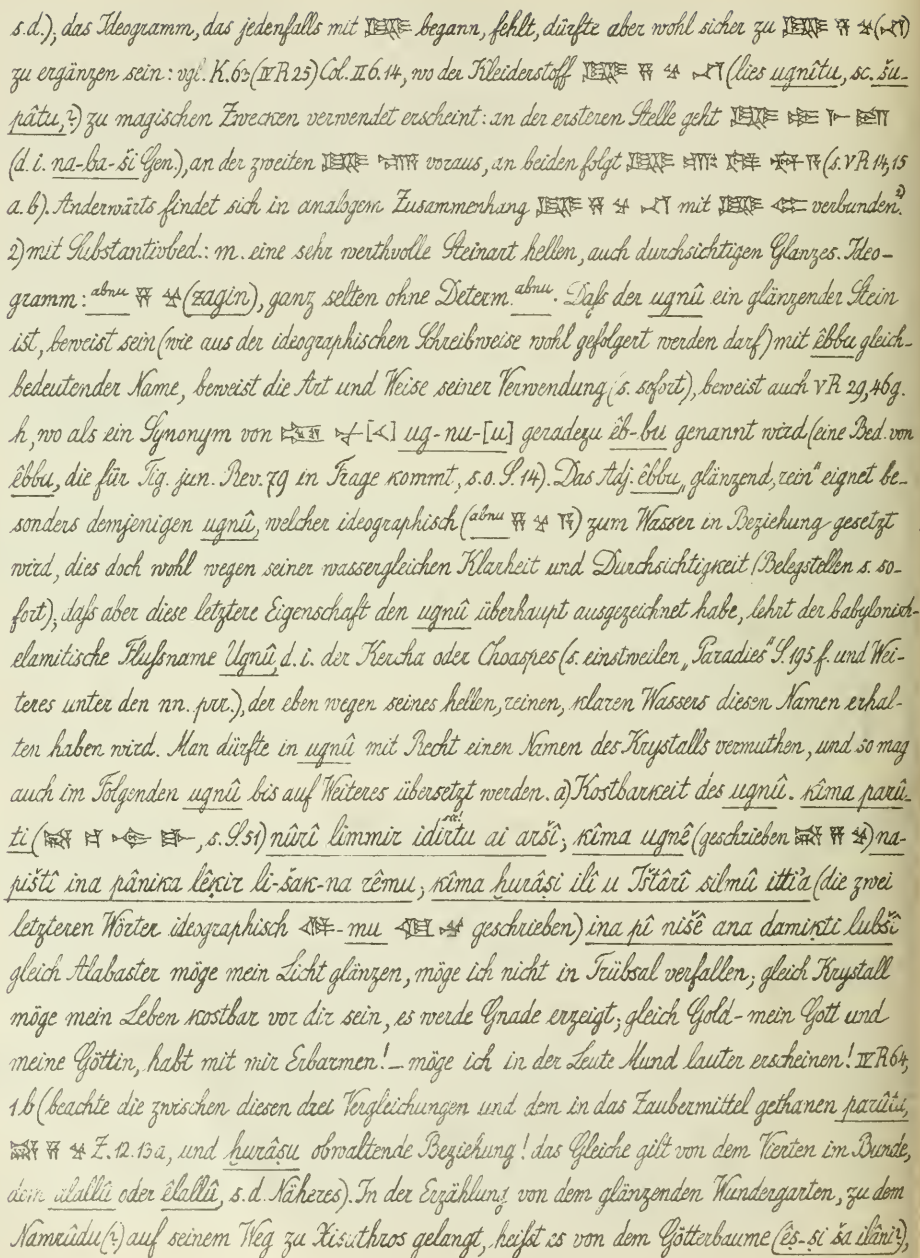 s.d.); das Ideogramm, das jedenfalls mit begann, fehlt, dürfte aber wohl sicher zu
zu ergänzen sein: vgl. K. 63 (IV R 25) Col. II 6. 14, wo der Kleiderstoff (lies ugnîtu, sc. šu-
pâtu,?) zu magischen Zwecken verwendet erscheint: an der ersteren Stelle geht
(d. i. na-ba-si Gen.), an der zweiten voraus, an beiden folgt (s. V R 14, 15
a. b). Anderwärts findet sich in analogem Zusammenhang mit verbunden.²⁾
2) mit Substantivbed.: m. eine sehr werthvolle Steinart hellen, auch durchsichtigen Glanzes. Ideo-
gramm: abnu 𒍝𒆳 (zagin), ganz selten ohne Determ. abnu. Daſs der ugnû ein glänzender Stein
ist, beweist sein (wie aus der ideographischen Schreibweise wohl gefolgert werden darf) mit êbbu gleich-
bedeutender Name, beweist die Art und Weise seiner Verwendung (s. sofort), beweist auch V R 29, 46 g.
h, wo als ein Synonym von ug-nu-[u] geradezu êb-bu genannt wird (eine Bed. von
êbbu, die für Tig. jun. Rev. 79 in Frage kommt, s. o. S. 14). Das Adj. êbbu „glänzend, rein“ eignet be-
sonders demjenigen ugnû, welcher ideographisch (abnu 𒍝𒆳𒀀) zum Wasser in Beziehung gesetzt
wird, dies doch wohl wegen seiner wassergleichen Klarheit und Durchsichtigkeit (Belegstellen s. so-
fort); daſs aber diese letztere Eigenschaft den ugnû überhaupt ausgezeichnet habe, lehrt der babylonisch-
elamitische Fluſsname Ugnû, d. i. der Kercha oder Choaspes (s. einstweilen „Paradies“ S. 195 f. und Wei-
teres unter den nn. prr.), der eben wegen seines hellen, reinen, klaren Wassers diesen Namen erhal-
ten haben wird. Man dürfte in ugnû mit Recht einen Namen des Krystalls vermuthen, und so mag
auch im Folgenden ugnû bis auf Weiteres übersetzt werden. a) Kostbarkeit des ugnû. kîma parû-
ti ( , s. S. 51) nûrî limmir idirtu ai aršî; kîma ugnê (geschrieben ) na-
pištî ina pânika lêkir li-šak-na rêmu; kîma ḫurâṣi ilî u Ištârî silmû itti'a (die zwei
letzteren Wörter ideographisch -mu geschrieben) ina pî nišê ana damikti lubšî
gleich Alabaster möge mein Licht glänzen, möge ich nicht in Trübsal verfallen; gleich Krystall
möge mein Leben kostbar vor dir sein, es werde Gnade erzeigt; gleich Gold – mein Gott und
meine Göttin, habt mit mir Erbarmen! – möge ich in der Leute Mund lauter erscheinen! IV R 64,
1. b (beachte die zwischen diesen drei Vergleichungen und dem in das Zaubermittel gethanen parûtu,
Z. 12. 13 a, und ḫurâṣu obwaltende Beziehung! das Gleiche gilt von dem Vierten im Bunde,
dem alallû oder êlallû, s. d. Näheres). In der Erzählung von dem glänzenden Wundergarten, zu dem
Namrûdu (?) auf seinem Weg zu Xisuthros gelangt, heiſst es von dem Götterbaume (êṣ-ṣi ša ilâni?),